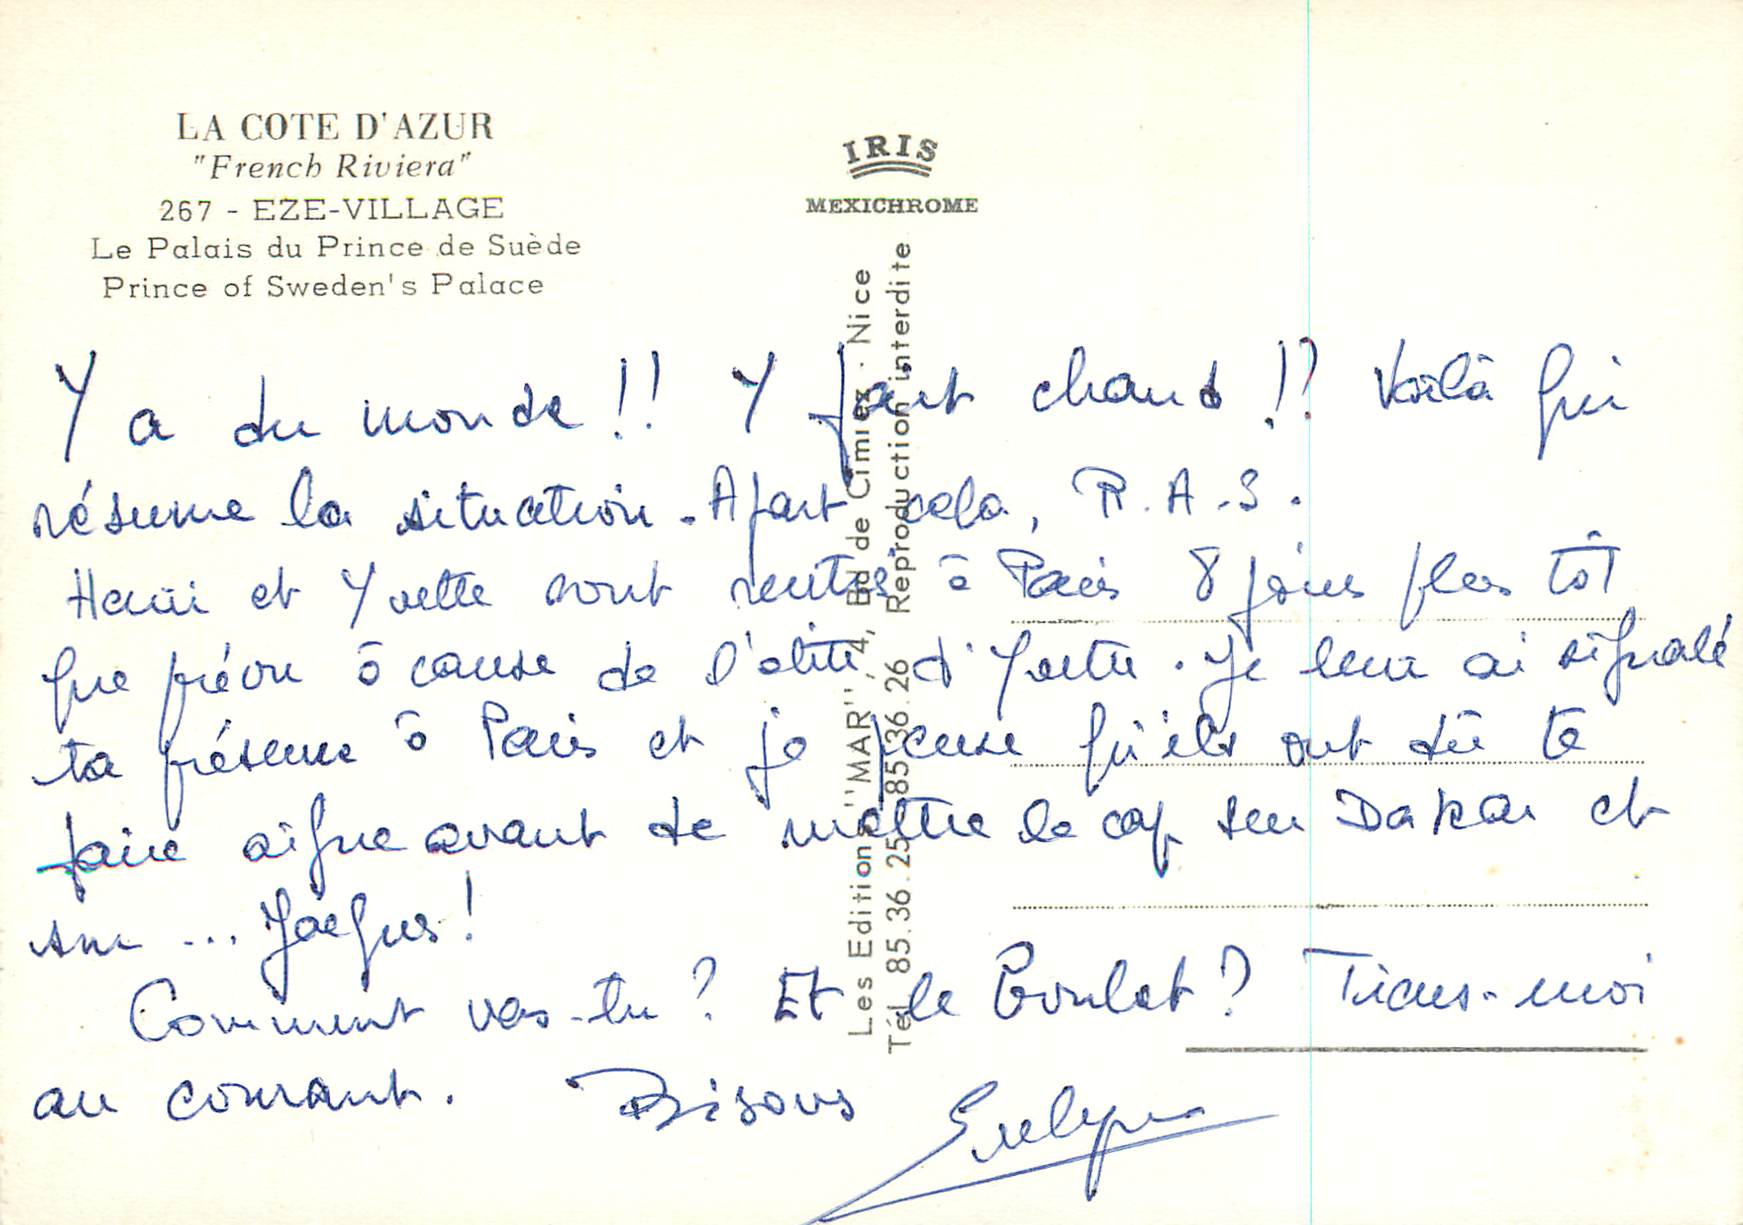 LA COTE D'AZUR
"French Riviera"
267 - EZE-VILLAGE
Le Palais du Prince de Suède
Prince of Sweden's Palace
IRIS
MEXICHROME
Les Editions "MAR", 4, Bd de Cimiez - Nice
Tél. 85.36.25 - 85.36.26 Reproduction interdite
Y a du monde !! Y fait chaud !! Voilà qui
résume la situation. A part cela, R.A.S.
Henri et Yvette sont rentrés à Paris 8 jours plus tôt
que prévu à cause de d'Yvette. Je leur ai signalé
ta présence à Paris et je pense qu'ils ont dû te
faire signe avant de mettre le cap sur Dakar et
sur ... Jacques !
Comment vas-tu ? Et le Boulot ? Tiens-moi
au courant. Bisous
Evelyne